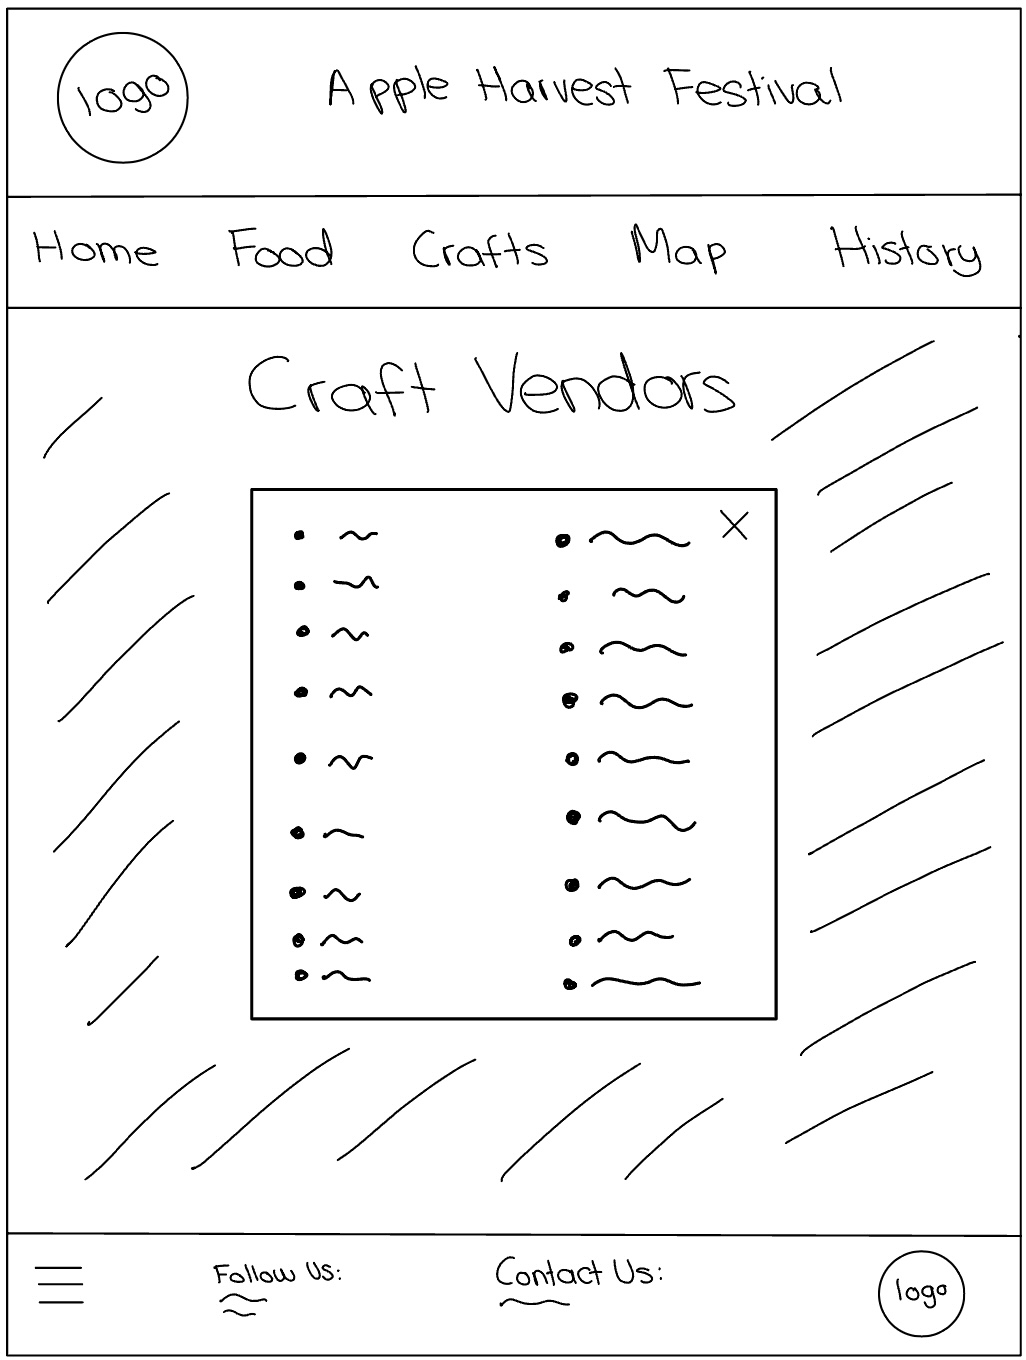 logo
Apple Harvest Festival
Home Food Crafts Map History
Craft Vendors
X
Follow Us:
Contact Us:
logo